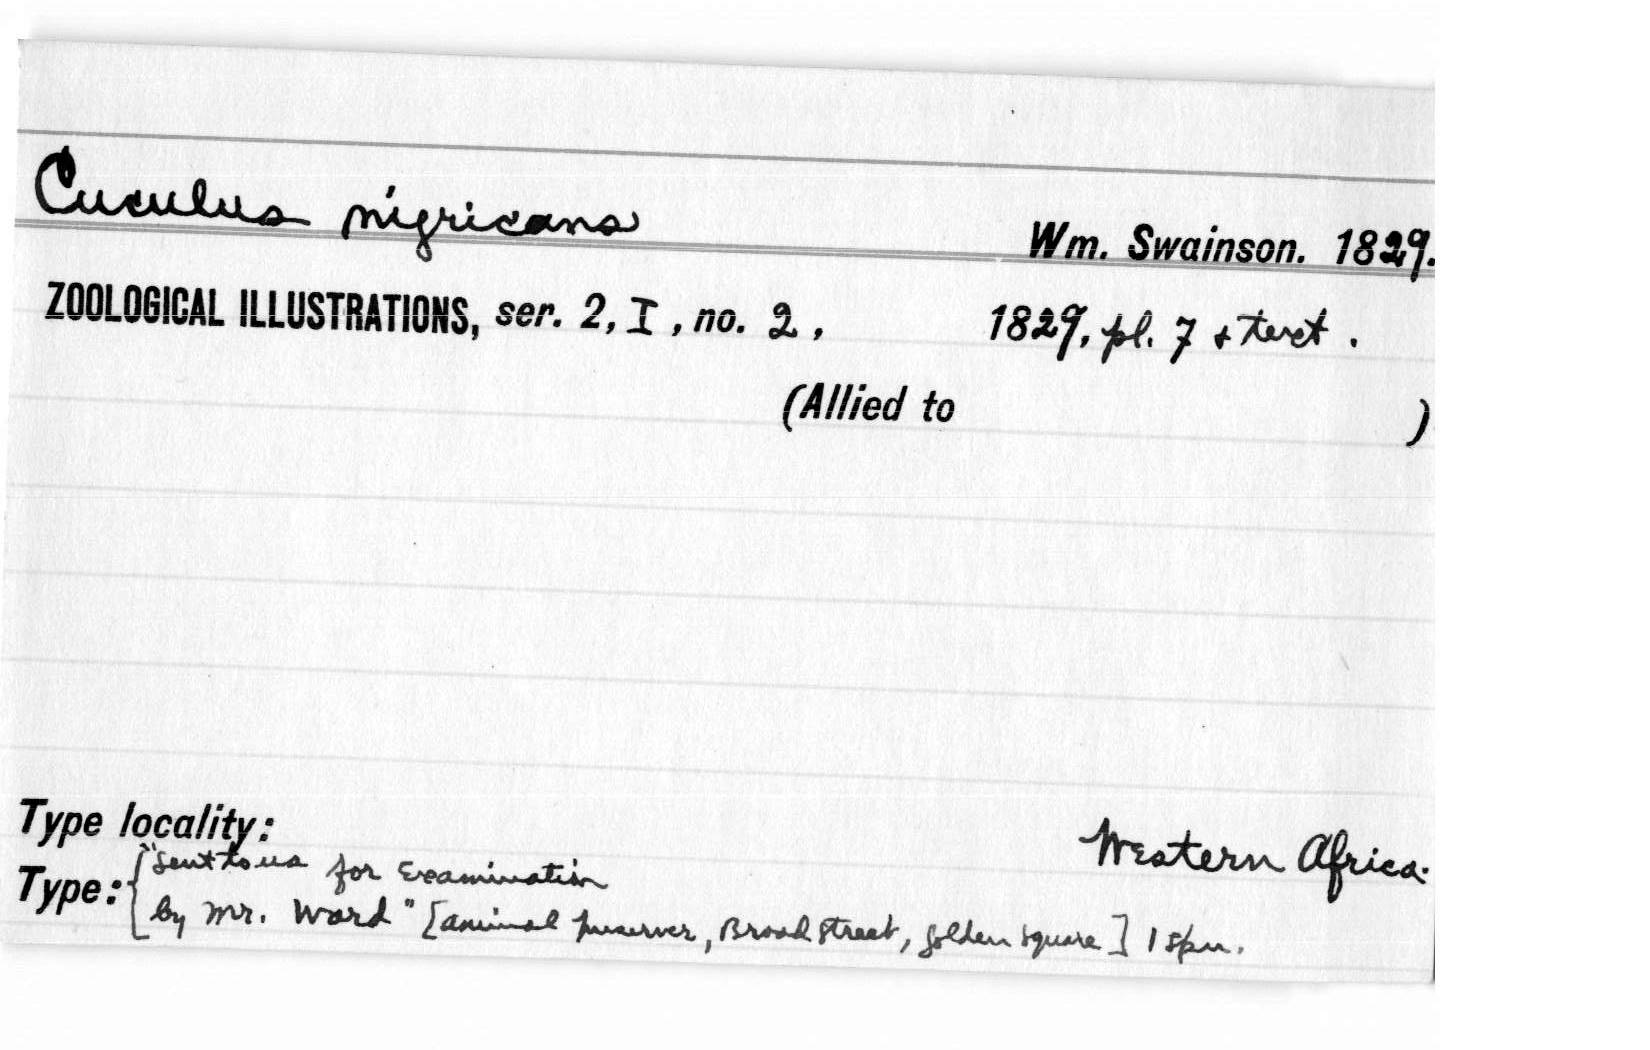 Cuculus nigricans
Wm. Swainson. 1829.
ZOOLOGICAL ILLUSTRATIONS, ser. 2, I, no. 2, 1829, pl. 7 + text.
(Allied to )
Type locality: Western Africa.
Type: { "sent to us for Examination
by Mr. Ward" [animal preserver, Broad street, golden square] 1 spn.